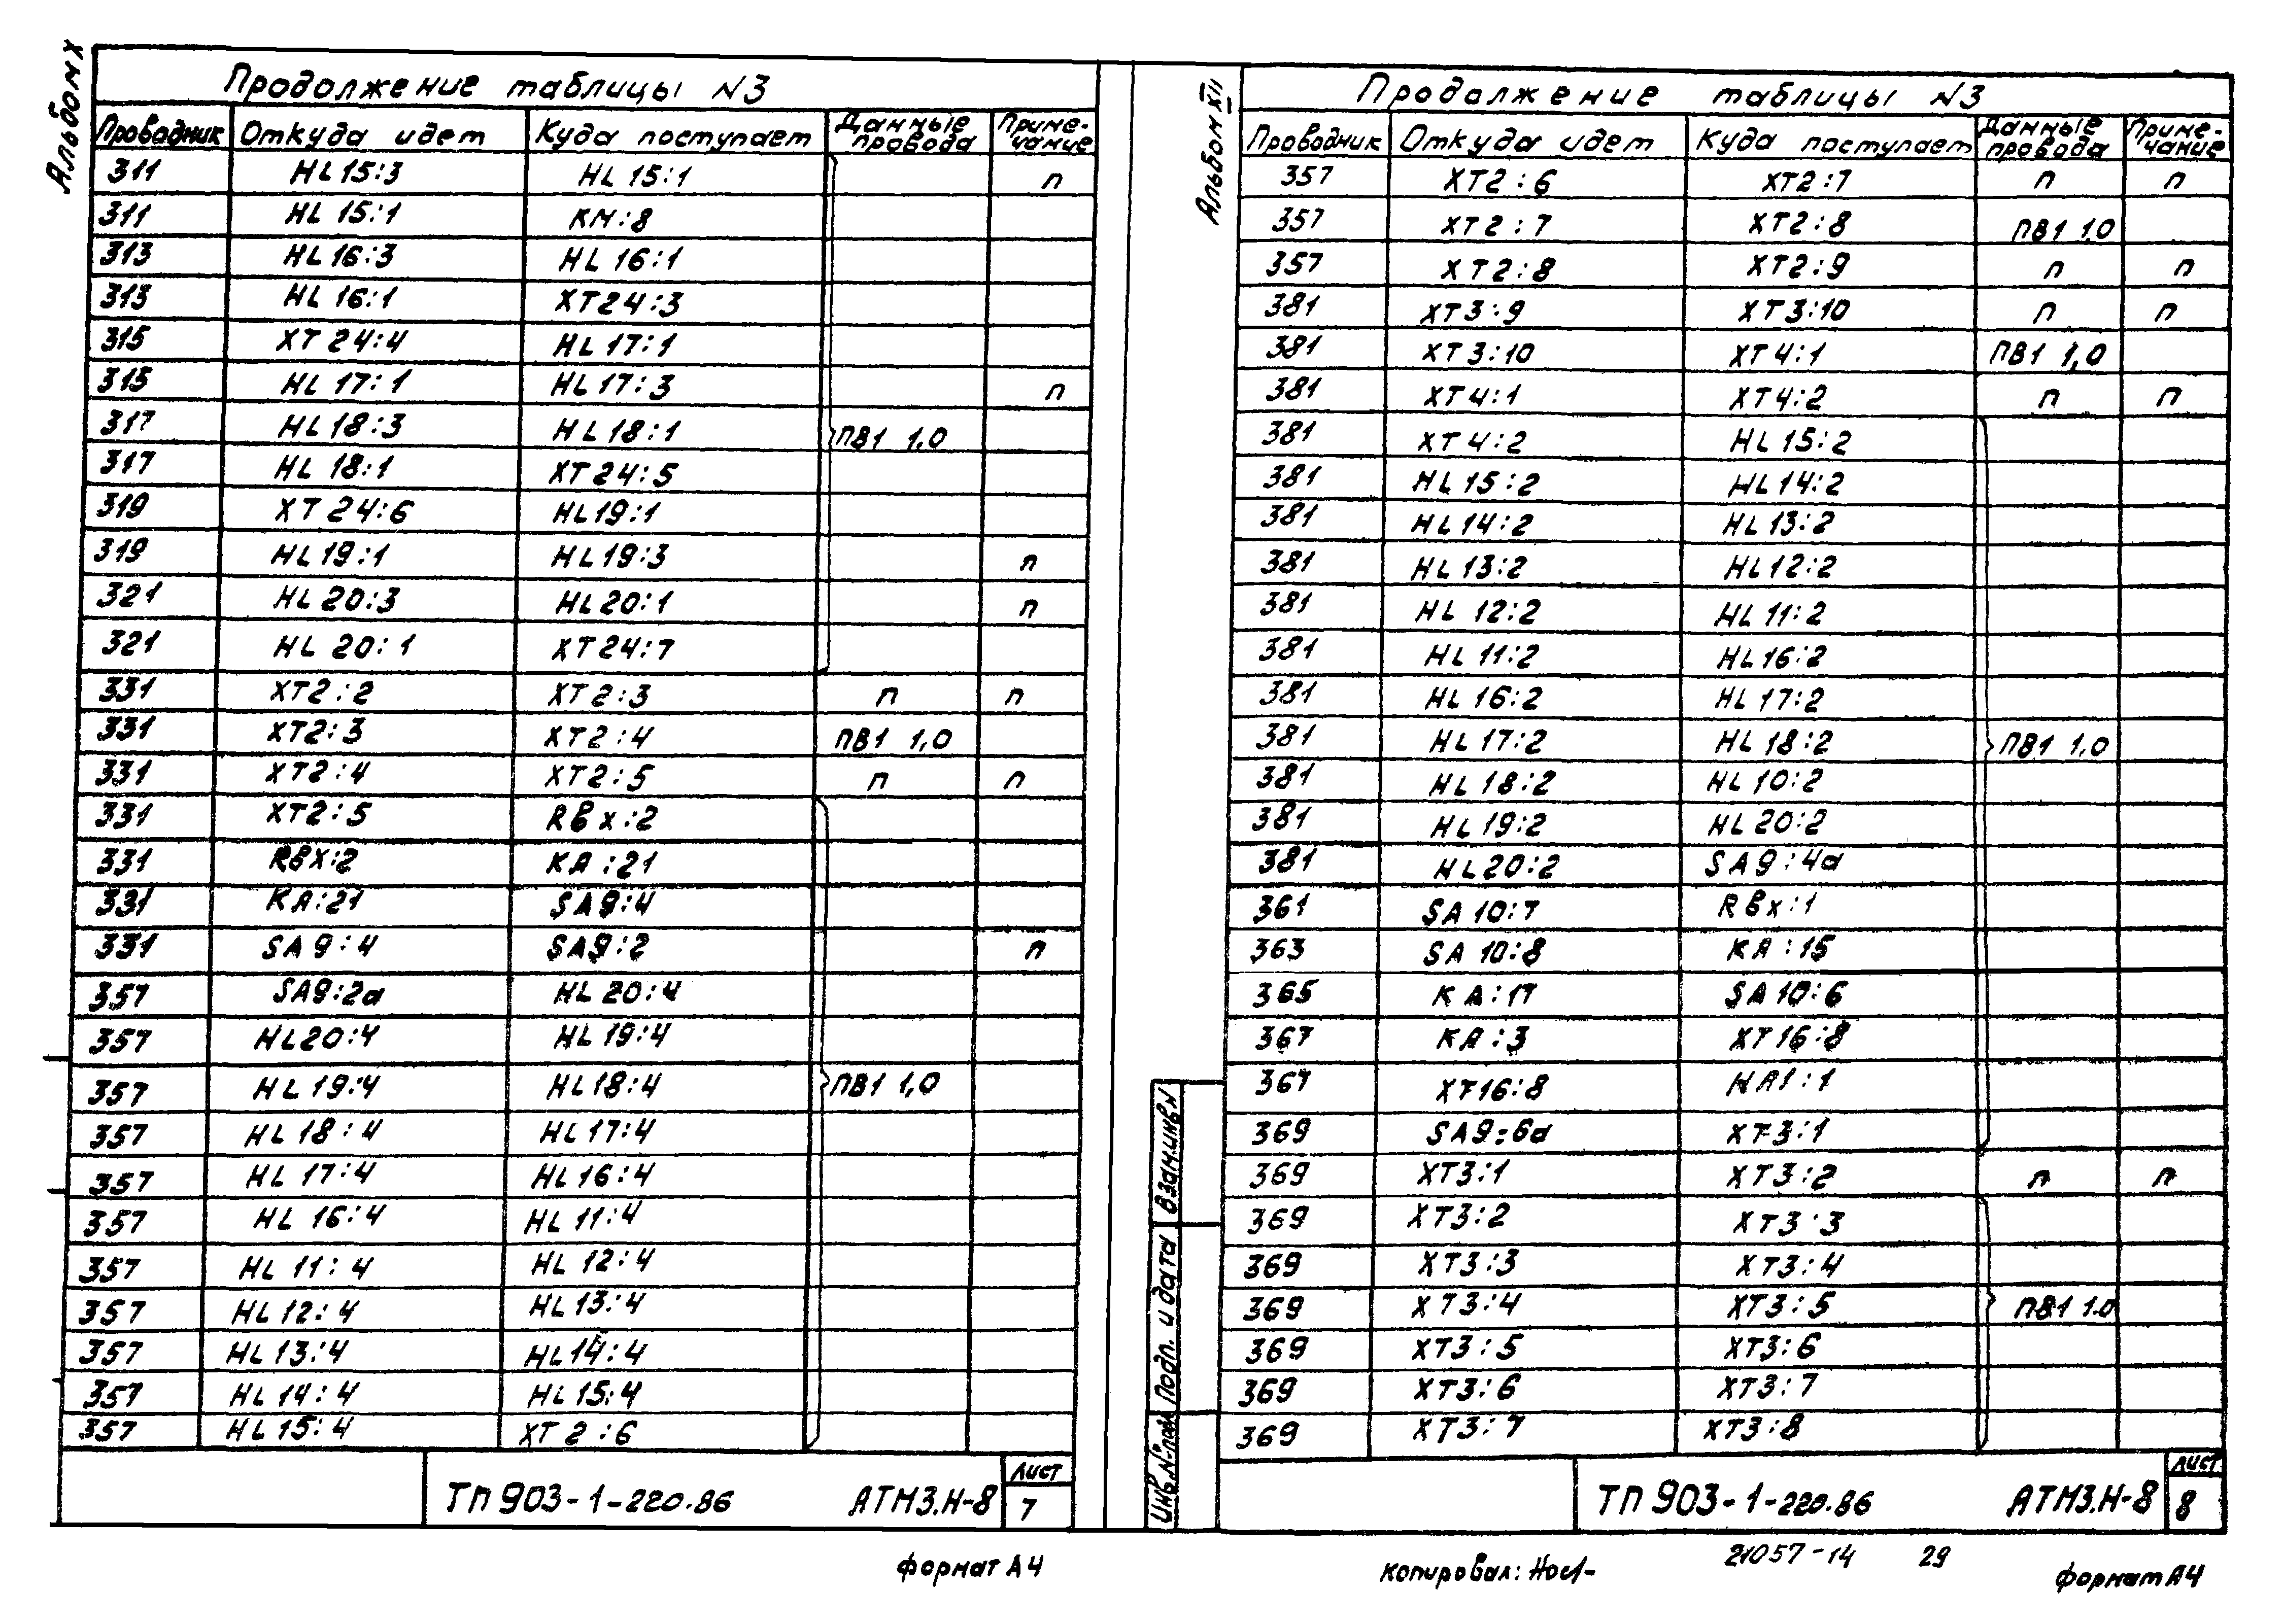 Альбом X
Продолжение таблицы N3
Проводник Откуда идет Куда поступает Данные провода Примечание
311 HL15:3 HL15:1 п
311 HL15:1 КМ:8
313 HL16:3 HL16:1
313 HL16:1 XT24:3
315 XT24:4 HL17:1
315 HL17:1 HL17:3 п
317 HL18:3 HL18:1 ПВ1 1,0
317 HL18:1 XT24:5
319 XT24:6 HL19:1
319 HL19:1 HL19:3 п
321 HL20:3 HL20:1 п
321 HL20:1 XT24:7
331 XT2:2 XT2:3 п п
331 XT2:3 XT2:4 ПВ1 1,0
331 XT2:4 XT2:5 п п
331 XT2:5 Rвх:2
331 Rвх:2 KA:21
331 KA:21 SA9:4
331 SA9:4 SA9:2 п
357 SA9:2a HL20:4
357 HL20:4 HL19:4
357 HL19:4 HL18:4 ПВ1 1,0
357 HL18:4 HL17:4
357 HL17:4 HL16:4
357 HL16:4 HL11:4
357 HL11:4 HL12:4
357 HL12:4 HL13:4
357 HL13:4 HL14:4
357 HL14:4 HL15:4
357 HL15:4 XT2:6
ТП 903-1-220.86 АТМ3.Н-8 Лист 7
формат А4
Альбом XII
Продолжение таблицы N3
Проводник Откуда идет Куда поступает Данные провода Примечание
357 XT2:6 XT2:7 п п
357 XT2:7 XT2:8 ПВ1 1,0
357 XT2:8 XT2:9 п п
381 XT3:9 XT3:10 п п
381 XT3:10 XT4:1 ПВ1 1,0
381 XT4:1 XT4:2 п п
381 XT4:2 HL15:2
381 HL15:2 HL14:2
381 HL14:2 HL13:2
381 HL13:2 HL12:2
381 HL12:2 HL11:2
381 HL11:2 HL16:2
381 HL16:2 HL17:2
381 HL17:2 HL18:2 ПВ1 1,0
381 HL18:2 HL10:2
381 HL19:2 HL20:2
381 HL20:2 SA9:4a
361 SA10:7 Rвх:1
363 SA10:8 KA:15
365 KA:17 SA10:6
367 KA:3 XT16:8
367 XT16:8 HA1:1
369 SA9:6a XT3:1
369 XT3:1 XT3:2 п п
369 XT3:2 XT3:3
369 XT3:3 XT3:4
369 XT3:4 XT3:5 ПВ1 1.0
369 XT3:5 XT3:6
369 XT3:6 XT3:7
369 XT3:7 XT3:8
Взам.инв N
Подп. и дата
Инв.N°подл
ТП 903-1-220.86 АТМ3.Н-8 Лист 8
21057-14 29
копировал:
формат А4